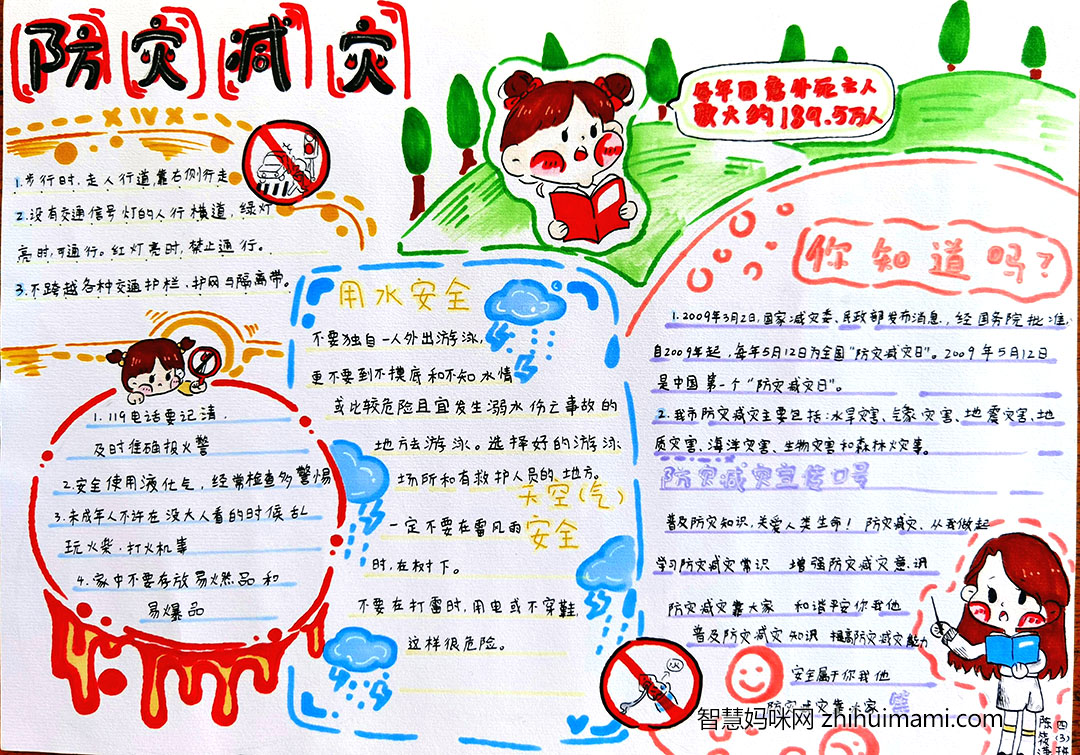 防灾减灾
每年因意外死亡人
数大约189.5万人
1.步行时,走人行道靠右侧行走
2.没有交通信号灯的人行横道,绿灯
亮时,可通行。红灯亮时,禁止通行。
3.不跨越各种交通护栏、护网与隔离带。
1.119电话要记清.
及时准确报火警
2.安全使用液化气,经常检查多警惕
3.未成年人不许在没大人看的时候乱
玩火柴.打火机事
4.家中不要存放易燃品和
易爆品
用水安全
不要独自一人外出游泳,
更不要到不摸底和不知水情
或比较危险且宜发生溺水伤亡事故的
地方去游泳。选择好的游泳
场所和有救护人员的地方。
天空(气)
安全
一定不要在雷风雨
时,在树下。
不要在打雷时,用电或不穿鞋,
这样很危险。
你知道吗?
1.2009年3月2日,国家减灾委、民政部发布消息,经国务院批准,
自2009年起,每年5月12日为全国“防灾减灾日”。2009年5月12日
是中国第一个“防灾减灾日”。
2.我市防灾减灾主要包括:水旱灾害、气象灾害、地震灾害、地
质灾害、海洋灾害、生物灾害和森林火灾事。
防灾减灾宣传口号
普及防灾知识,关爱人类生命! 防灾减灾、从我做起
学习防灾减灾常识 增强防灾减灾意识
防灾减灾靠大家 和谐平安你我他
普及防灾减灾知识 提高防灾减灾能力
安全属于你我他
防灾减灾靠大家
智慧妈咪网 zhihuimami.com
四(3)班